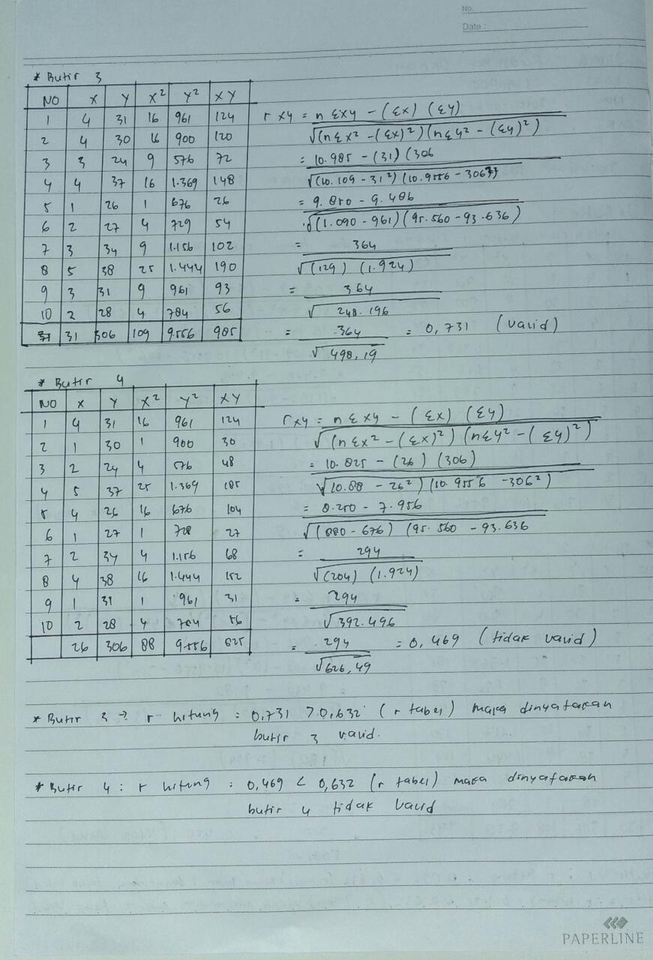 No.
Date :
* Butir 3
NO X Y X² Y² XY
1 4 31 16 961 124
2 4 30 16 900 120
3 3 24 9 576 72
4 4 37 16 1.369 148
5 1 26 1 676 26
6 2 27 4 729 54
7 3 34 9 1.156 102
8 5 38 25 1.444 190
9 3 31 9 961 93
10 2 28 4 784 56
31 306 109 9.556 985
r xy = n Σxy - (Σx) (Σy)
√(n Σx² - (Σx)²) (n Σy² - (Σy)²)
= 10.985 - (31) (306
√(10.109 - 31²) (10.9556 - 306²)
= 9.850 - 9.486
√(1.090 - 961) (95.560 - 93.636)
= 364
√(129) (1.924)
= 364
√248.196
= 364 = 0,731 (valid)
√498,19
* Butir 4
NO X Y X² Y² XY
1 4 31 16 961 124
2 1 30 1 900 30
3 2 24 4 576 48
4 5 37 25 1.369 185
5 4 26 16 676 104
6 1 27 1 728 27
7 2 34 4 1.156 68
8 4 38 16 1.444 152
9 1 31 1 961 31
10 2 28 4 784 56
26 306 88 9.556 825
r xy = n Σxy - (Σx) (Σy)
√(n Σx² - (Σx)²) (n Σy² - (Σy)²)
= 10.825 - (26) (306)
√(10.88 - 26²) (10.9556 - 306²)
= 8.250 - 7.956
√(880 - 676) (95.560 - 93.636
= 294
√(204) (1.924)
= 294
√392.496
= 294 = 0,469 (tidak valid)
√626,49
* Butir 3 → r hitung = 0,731 > 0,632 (r tabel) maka dinyatakan
butir 3 valid.
* Butir 4 : r hitung = 0,469 < 0,632 (r tabel) maka dinyatakan
butir 4 tidak valid
PAPERLINE